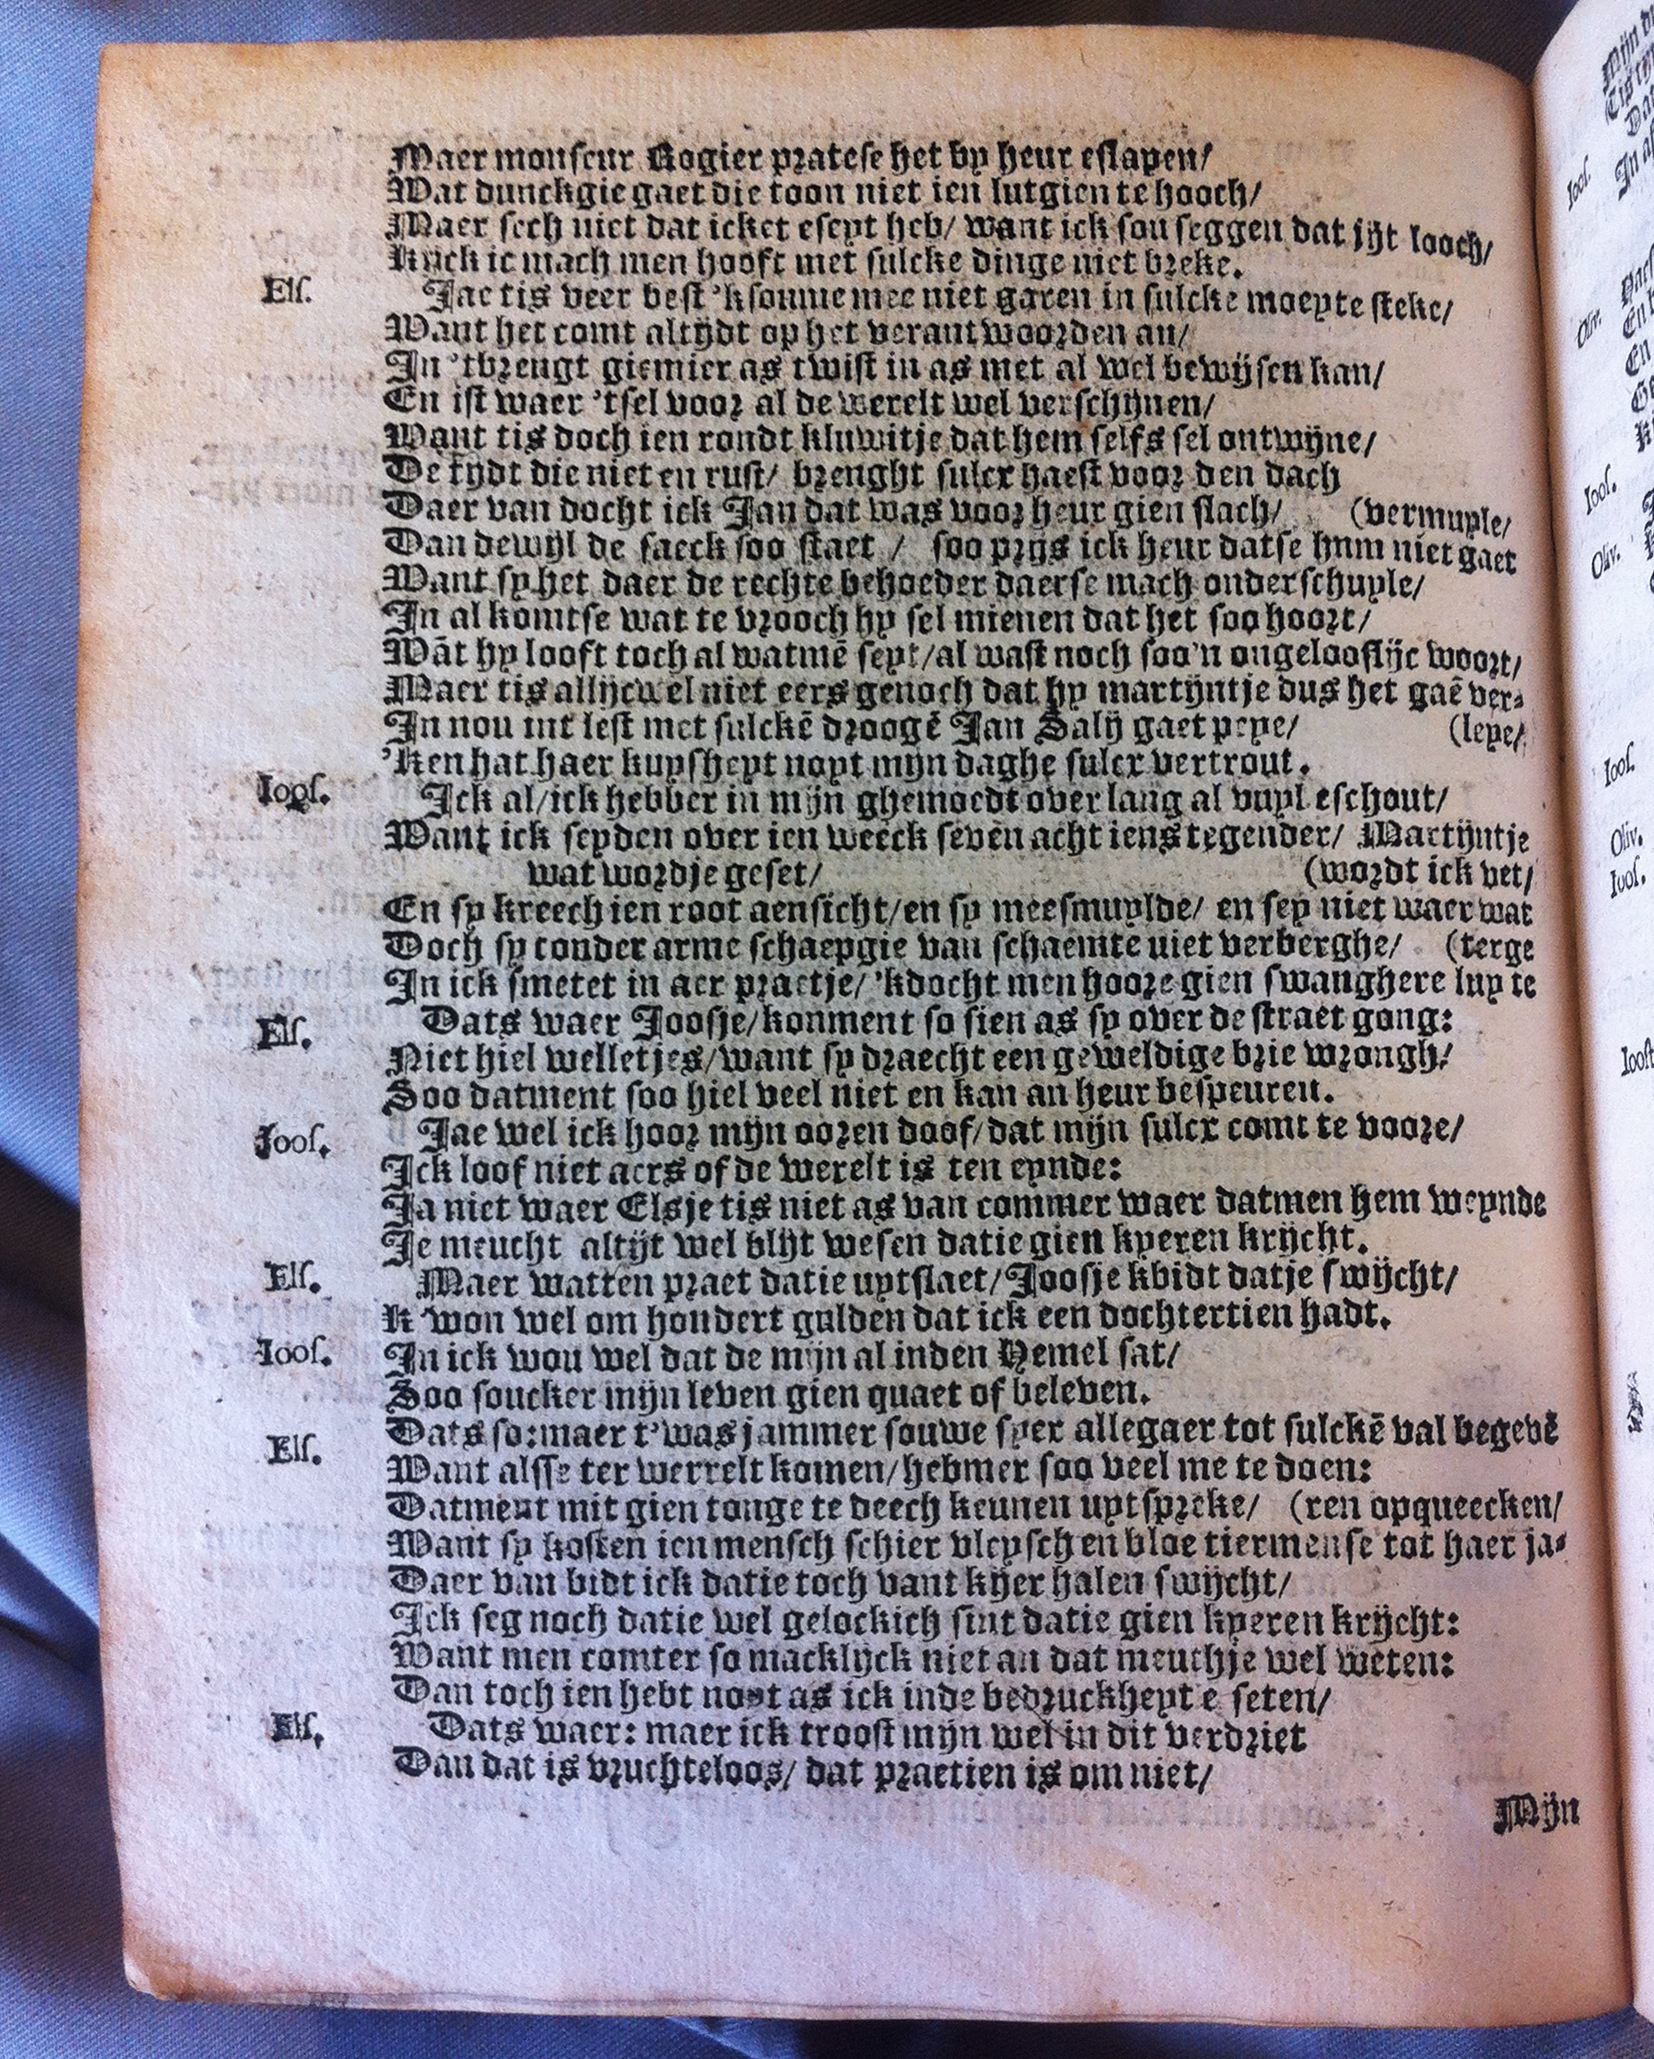 Maer monseur Rogier pratese het by heur eslapen/
Wat dunckgie gaet die toon niet ien lutgien te hooch/
Maer sech niet dat icket eseyt heb/ want ick sou seggen dat jyt looch/
Kijck ic mach men hooft met sulcke dinge niet breke.
Els. Jae tis veer best 'ksoume mee niet garen in sulcke moeyte steke/
Want het comt altijdt op het verantwoorden an/
In 'tbrengt giemier as twist in as met al wel bewijsen kan/
En ist waer 'tsel voor al de werelt wel verschijnen/
Want tis doch ien rondt kluwitje dat hem selfs sel ontwyne/
De tydt die niet en rust/ brenght sulcx haest voor den dach
Daer van docht ick Jan dat was voor heur gien slach/ (vermuyle/
Dan dewijl de saeck soo staet / soo prijs ick heur datse hum niet gaet
Want sy het daer de rechte behoeder daerse mach onderschuyle/
In al komtse wat te vrooch hy sel mienen dat het soo hoort/
Wāt hy looft toch al watmē seyt/al wast noch soo'n ongelooflijc woort/
Maer tis allijcwel niet eers genoch dat hy martijntje dus het gaē ver-
In nou int lest met sulckē droogē Jan Salij gaet peye/ (leye/
'Ken hat haer kuysheyt noyt mijn daghe sulcx vertrout.
Ioos. Ick al/ick hebber in mijn ghemoedt over lang al vuyl eschout/
Want ick seyden over ien weeck seven acht iens tegender/ Martijntje
wat wordje geset/ (wordt ick vet/
En sy kreech ien root aensicht/en sy meesmuylde/ en sey niet waer wat
Doch sy conder arme schaepgie van schaemte niet verberghe/ (terge
In ick smetet in aer praetje/'kdocht men hoore gien swanghere luy te
Els. Dats waer Joosje/konment so sien as sy over de straet gong:
Niet hiel welletjes/want sy draecht een geweldige brie wrongh/
Soo datment soo hiel veel niet en kan an heur bespeuren.
Joos. Jae wel ick hoor mijn ooren doof/dat mijn sulcx comt te voore/
Ick loof niet aers of de werelt is ten eynde:
Ja niet waer Elsje tis niet as van commer waer datmen hem weynde
Je meucht altijt wel blijt wesen datie gien kyeren krijcht.
Els. Maer watten praet datie uytslaet/Joosje kbidt datje swijcht/
K 'won wel om hondert gulden dat ick een dochtertien hadt.
Ioos. In ick wou wel dat de mijn al inden Hemel sat/
Soo soucker mijn leven gien quaet of beleven.
Els. Dats so:maer t'was jammer souwe syer allegaer tot sulckē val begevē
Want alsse ter werrelt komen/hebmer soo veel me te doen:
Datment mit gien tonge te deech keunen uytspreke/ (ren opqueecken/
Want sy kosten ien mensch schier vleysch en bloe tiermense tot haer ja-
Daer van bidt ick datie toch vant kyer halen swijcht/
Ick seg noch datie wel gelockich sint datie gien kyeren krijcht:
Want men comter so macklijck niet an dat meuchje wel weten:
Dan toch ien hebt noyt as ick inde bedruckheyt e seten/
Els. Dats waer: maer ick troost mijn wel in dit verdriet
Dan dat is vruchteloos/ dat praetien is om niet/
Mijn